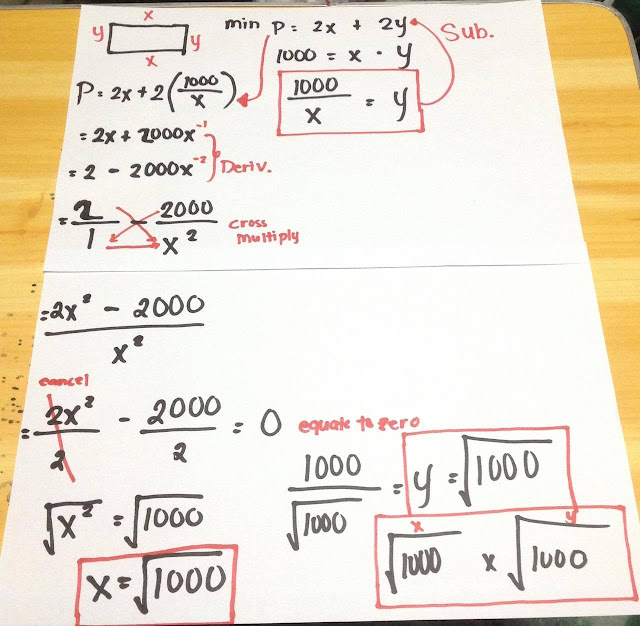 x
y y
x
min P = 2x + 2y
Sub.
1000 = x · y
1000/x = y
P = 2x + 2(1000/x)
= 2x + 2000x⁻¹
= 2 - 2000x⁻²
Deriv.
= 2/1 - 2000/x²
cross
multiply
= 2x² - 2000/x²
cancel
= 2x²/2 - 2000/2 = 0
equate to zero
√x² = √1000
x = √1000
1000/√1000 = y = √1000
x y
√1000 x √1000